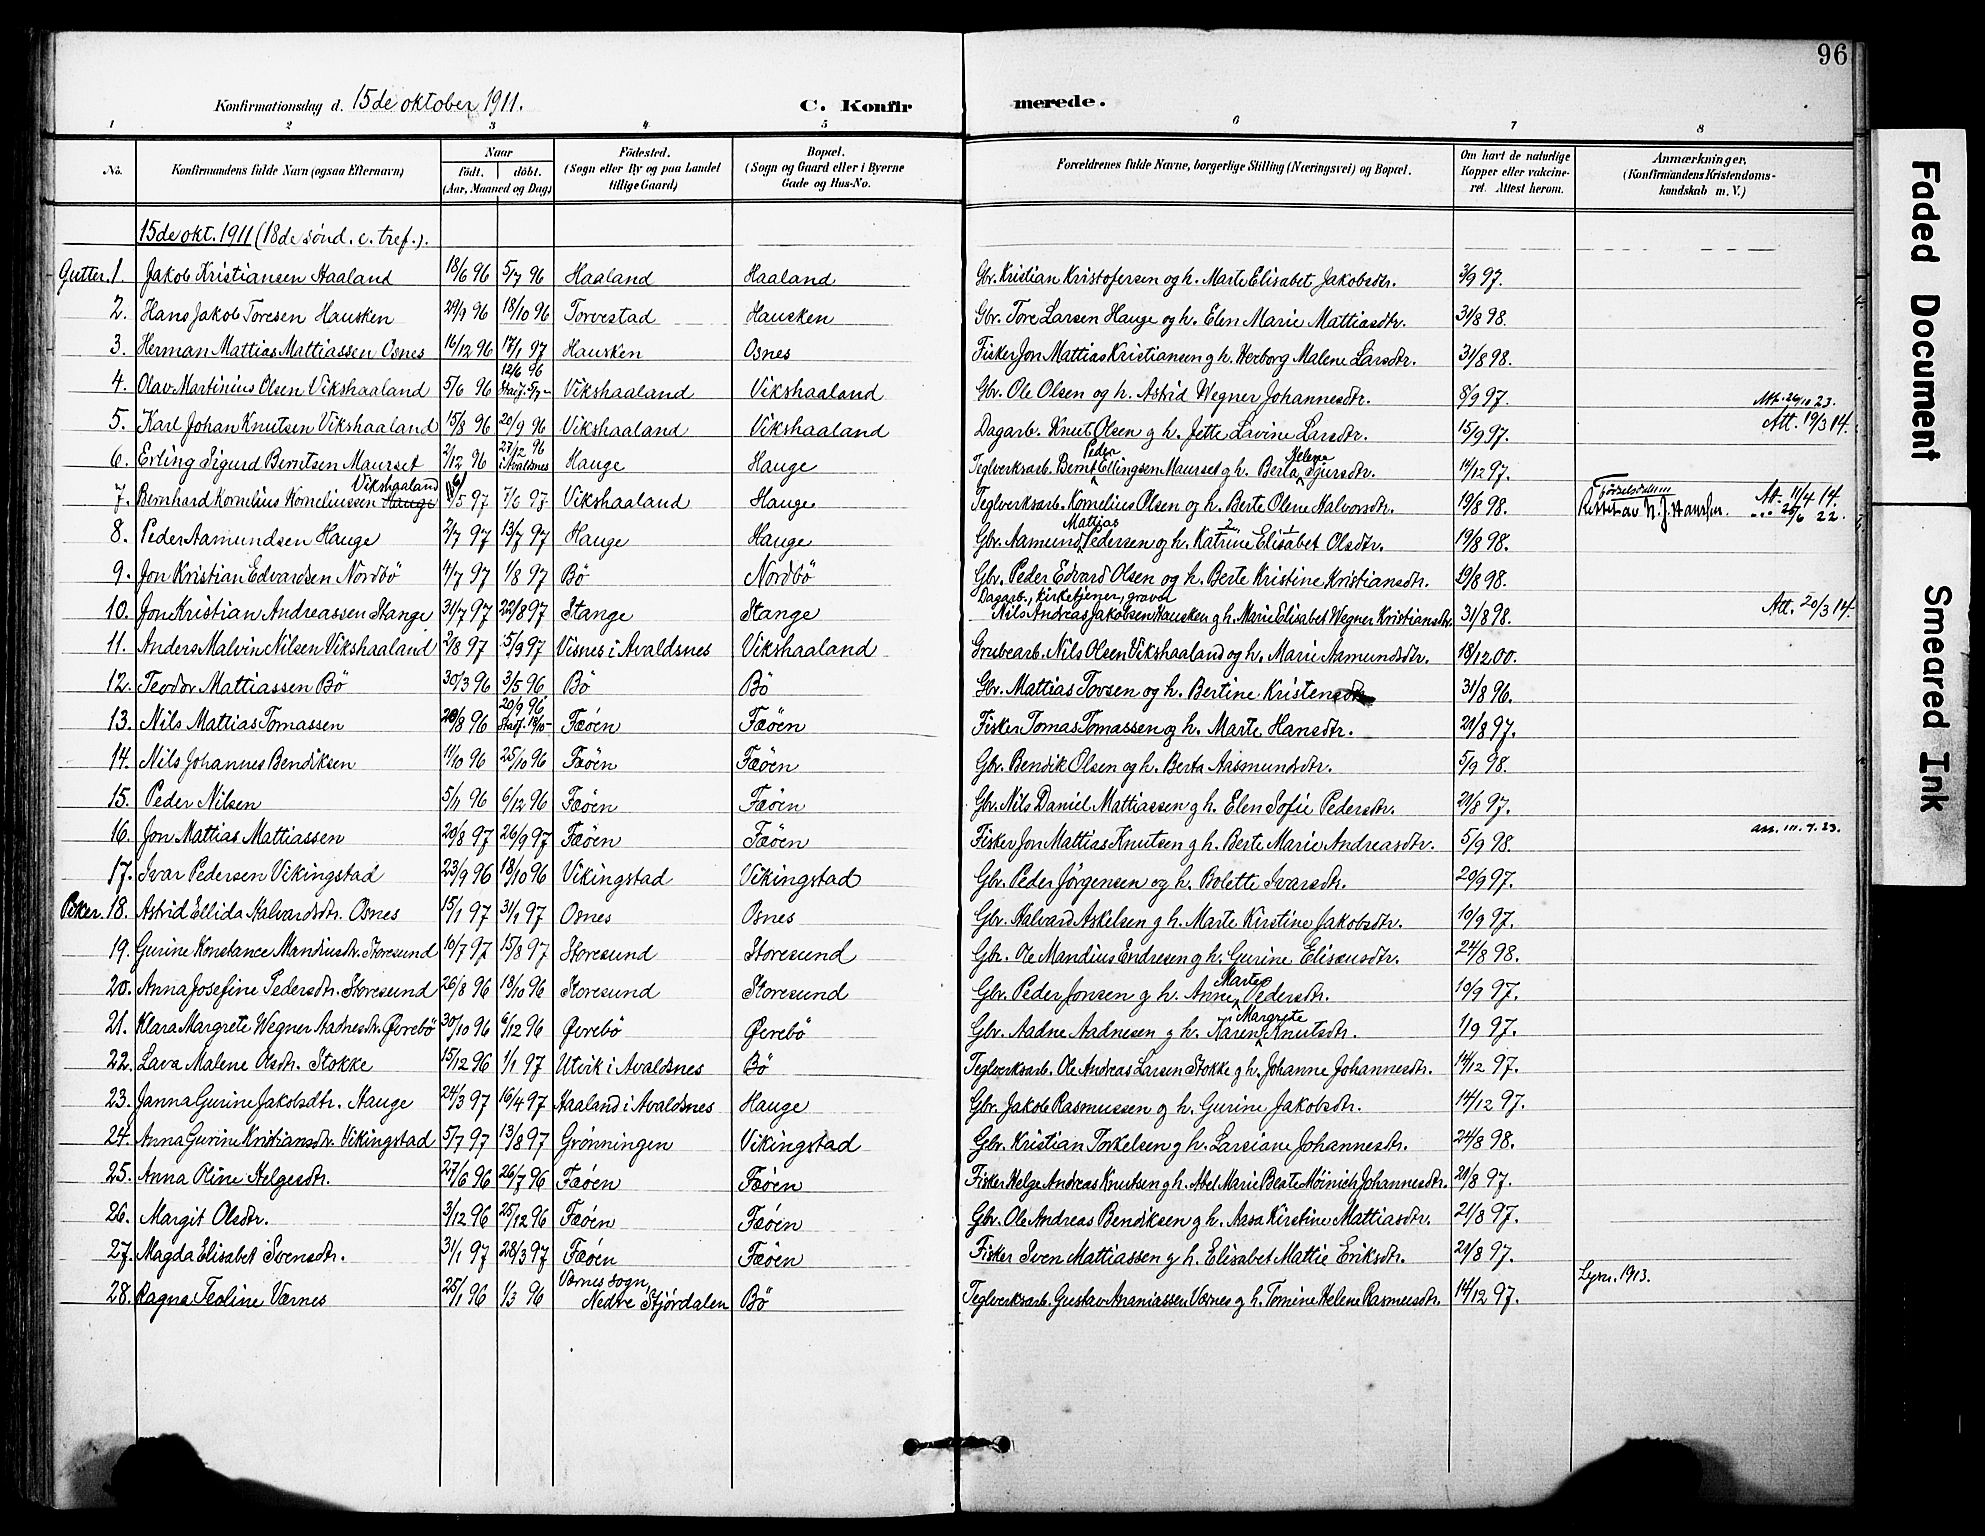 96
Konfirmationsdag d. 15de oktober 1911. C. Konfirmerede.
1 2 3 4 5 6 7 8
No. Konfirmandens fulde Navn (ogsaa Efternavn) Naar födt. döbt. (Aar, Maaned og Dag) Födested. (Sogn eller By og paa Landet tillige Gaard) Bopæl. (Sogn og Gaard eller i Byerne Gade og Hus-No. Forældrenes fulde Navne, borgerlige Stilling (Næringsvei) og Bopæl. Om havt de naturlige Kopper eller vaccineret. Attest herom. Anmærkninger. (Konfirmandens Kristendomskundskab m. V.)
15de okt. 1911 (18de sönd. e. tref.).
Gutter. 1. Jakob Kristiansen Haaland 18/6 96 5/7 96 Haaland Haaland Gbr. Kristian Kristofersen og h. Marte Elisabet Jakobsdtr. 3/9 97.
2. Hans Jakob Toresen Hausken 29/9 96 18/10 96 Torvestad Hausken Gbr. Tore Larsen Hauge og h. Elen Marie Mattiasdtr. 31/8 98.
3. Herman Mattias Mattiassen Osnes 16/12 96 17/1 97 Hausken Osnes Fisker Jon Mattias Kristiansen g h. Herborg Malene Larsdtr. 31/8 98.
4. Olav Martinius Olsen Vikshaaland 5/6 96 12/6 96 Stadf. 5/7 - Vikshaaland Vikshaaland Gbr. Ole Olsen og h. Astrid Wegner Johannesdtr. 8/9 97.
5. Karl Johan Knutsen Vikshaaland 15/8 96 20/9 96 Vikshaaland Vikshaaland Dagarb. Knut Olsen g h. Jette Lavine Larsdtr. 15/9 97. Att. 19/3 14.
6. Erling Sigurd Berntsen Maurset 2/12 96 27/12 96 i Avaldsnes Hauge Hauge Teglverksarb. Bernt Peder Ellingsen Maurset g h. Berta Helene Sjursdtr. 14/12 97.
7. Bernhard Kornelius Korneliussen Hauge Vikshaaland 16/5 97 7/6 97 Vikshaaland Hauge Teglverksarb. Kornelius Olsen og h. Berte Olene Halvorsdtr. 19/8 98. Födselsdatum Rettet av N. J. Hausken. Att. 11/4 14. - " - 26/6 22.
8. Peder Aamundsen Hauge 2/7 97 13/7 97 Hauge Hauge Gbr. Aamund Mattias Pedersen og h. Katrine 2 Elisabet 1 Olsdtr. 19/8 98.
9. Jon Kristian Edvardsen Nordbö 4/7 97 1/8 97 Bö Nordbö Gbr. Peder Edvard Olsen og h. Berte Kristine Kristiansdtr. 19/8 98.
10. Jon Kristian Andreassen Stange 31/7 97 22/8 97 Stange Stange Dagarb., kirketjener, graver Nils Andreas Jakobsen Hausken g h. Marie Elisabet Wegner Kristiansdtr. 31/8 98. Att. 20/3 14.
11. Anders Malvin Nilsen Vikshaaland 2/8 97 5/9 97 Visnes i Avaldsnes Vikshaaland Grubearb. Nils Olsen Vikshaaland og h. Marie Aamundsdtr. 18/12 00.
12. Teodor Mattiassen Bö 30/3 96 3/5 96 Bö Bö Gbr. Mattias Tovsen og h. Bertine Kristensdtr. 31/8 96.
13. Nils Mattias Tomassen 20/8 96 20/9 96 Stadf. 18/10 - Fæöen Fæöen Fisker Tomas Tomassen og h. Marte Hansdtr. 21/8 97.
14. Nils Johannes Bendiksen 11/10 96 25/10 96 Fæöen Fæöen Gbr. Bendik Olsen og h. Berta Aasmundsdtr. 5/9 98.
15. Peder Nilsen 5/11 96 6/12 96 Fæöen Fæöen Gbr. Nils Daniel Mattiassen g h. Elen Sofie Pedersdtr. 21/8 97.
16. Jon Mattias Mattiassen 20/8 97 26/9 97 Fæöen Fæöen Fisker Jon Mattias Knutsen g h. Berte Marie Andreasdtr. 5/9 98.
17. Ivar Pedersen Vikingstad 23/9 96 18/10 96 Vikingstad Vikingstad Gbr. Peder Jörgensen og h. Bolette Ivarsdtr. 20/9 97.
Piker. 18. Astrid Ellida Halvardsdtr. Osnes 15/1 97 31/1 97 Osnes Osnes Gbr. Halvard Askelsen g h. Marte Kirstine Jakobsdtr. 10/9 97.
19. Gurine Konstance Mandiusdtr. Storesund 10/7 97 15/8 97 Storesund Storesund Gbr. Ole Mandius Endresen g h. Gurine Elisæusdtr. 24/8 98.
20. Anna Josefine Pedersdtr. Storesund 26/8 96 18/10 96 Storesund Storesund Gbr. Peder Jonsen g h. Anne Marta Pedersdtr. 10/9 97.
21. Klara Margrete Wegner Aadnesdtr. Övrebö 30/10 96 6/12 96 Övrebö Övrebö Gbr. Aadne Aadnesen g h. Karen Margrete Knutsdtr. 1/9 97.
22. Lava Malene Olsdtr. Stokke 15/12 96 1/1 97 Utvik i Avaldsnes Bö Teglverksarb. Ole Andreas Larsen Stokke g h. Johanne Johannesdtr. 14/12 97.
23. Janna Gurine Jakobsdtr. Hauge 24/3 97 16/4 97 Haaland i Avaldsnes Hauge Gbr. Jakob Rasmussen og h. Gurine Jakobsdtr. 14/12 97.
24. Anna Gurine Kristiansdtr. Vikingstad 5/7 97 13/8 97 Grönningen Vikingstad Gbr. Kristian Torkelsen g h. Larsiane Johannesdtr. 24/8 98.
25. Anna Oline Helgesdtr. 27/6 96 26/7 96 Fæöen Fæöen Fisker Helge Andreas Knutsen g h. Abel Marie Beate Möinich Johannesdtr. 21/8 97.
26. Margit Olsdtr. 3/12 96 25/12 96 Fæöen Fæöen Gbr. Ole Andreas Bendiksen g h. Aasa Kirstine Mattiasdtr. 21/8 97.
27. Magda Elisabet Svensdtr. 31/1 97 28/3 97 Fæöen Fæöen Fisker Sven Mattiassen g h. Elisabet Mattie Eriksdtr. 21/8 97.
28. Ragna Teoline Værnes 25/1 96 1/3 96 Værnes sogn, Nedre Stjördalen Bö Teglverksarb. Gustav Ananiassen Værnes g h. Tomine Helene Rasmusdtr. 14/12 97. Lysn. 1913.
Faded Document
Smeared Ink